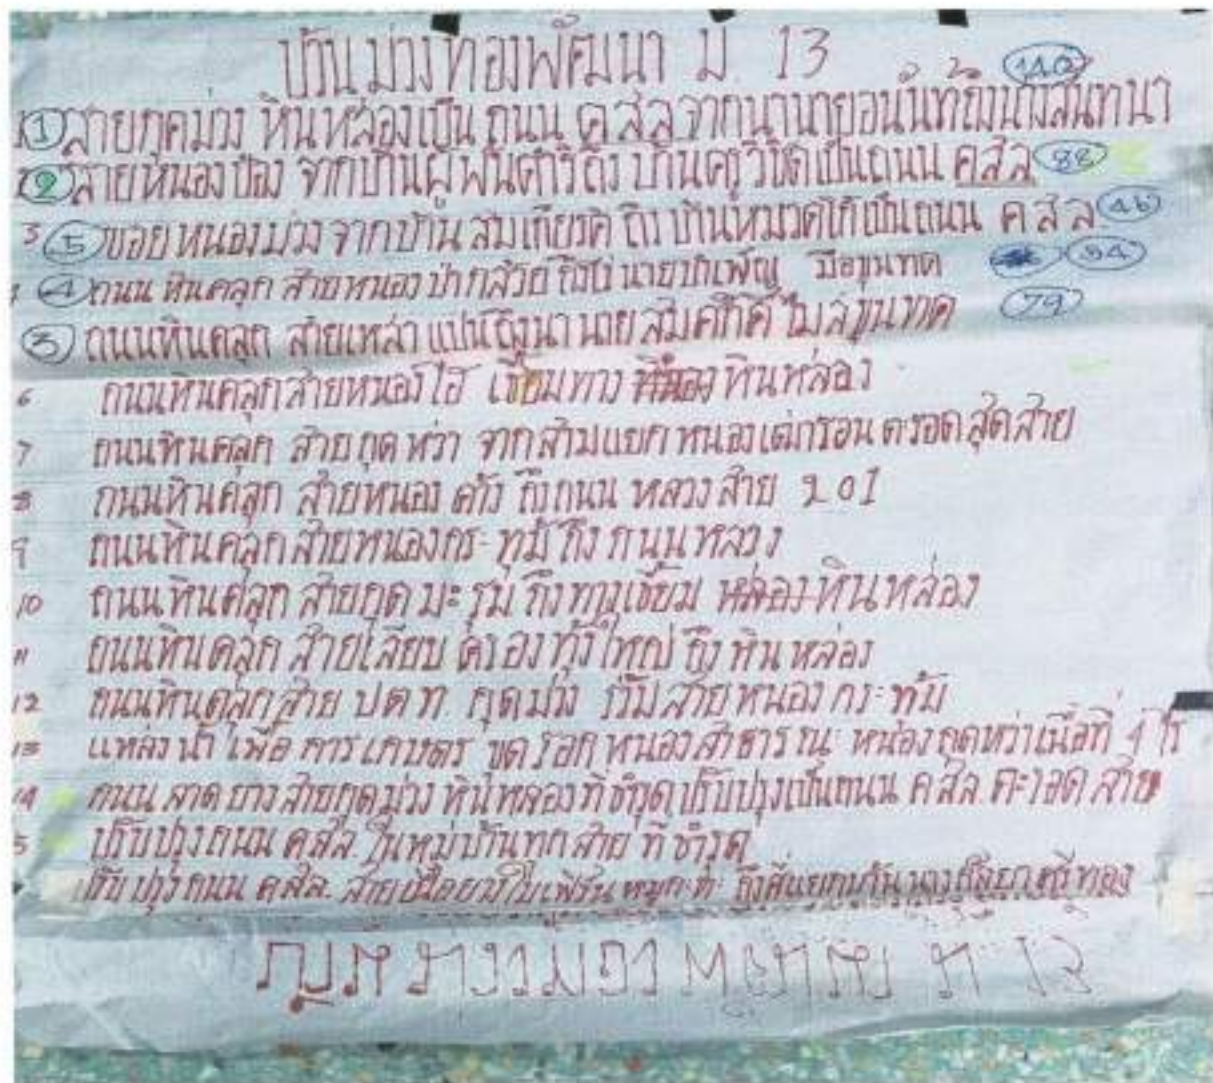 บ้านม่วงทองพัฒนา ม. 13
140
1 สายกุดม่วง หินหล่องเป็น ถนน ค ส ล จากนานายอนันท์ถึงนางสันทนา
2 สายหนองป่อง จากบ้านผู้พันคำรีถึง บ้านครูวิชิตเป็นถนน คสล 88
3 5 ซอยหนองม่วง จากบ้าน สมเกียรติ ถึง บ้านหมวดไก่เป็นถนน ค ส ล 46
4 ถนน หินคลุก สายหนอง ป่ากล้วย ถึงไร่ นายบำเพ็ญ มือขุนทด 54
3 ถนนหินคลุก สายเหล่า แป้นถึงนา นาย สมศักดิ์ ขุนทด 79
6 ถนนหินคลุกสายหนองไฮ เชื่อมทาง หินหล่อง
7 ถนนหินคลุก สายกุดหว่า จากสามแยก หนองเต่าร้อน ตรอดสุดสาย
8 ถนนหินคลุก สายหนอง ครั่ง ถึงถนน หลวง สาย 201
9 ถนนหินคลุกสายหนองกระทุ่ม ถึง ถนนหลวง
10 ถนนหินคลุก สายกุด มะรุม ถึงทางเชื่อม หินหล่อง
11 ถนนหินคลุก สายเลียบ คลองทุ่งใหญ่ ถึง หินหล่อง
12 ถนนหินคลุกสาย ปตท. กุดม่วง สายหนองกระทุ่ม
13 แหล่งน้ำ เพื่อ การเกษตร ขุดรอก หนองสาธารณะ หนองกุดหว่าเนื้อที่ 4 ไร่
14 ถนน ลาดยางสายกุดม่วง หินหลองที่ชำรุดปรับปรุงเป็นถนน คสล. ตะรอดสาย
5 ปรับปรุงถนน คสล. ในหมู่บ้านทุกสาย ที่ชำรุด
ปรับปรุงถนน คสล. ถึงสี่แยกบ้านนาง ศรีทอง